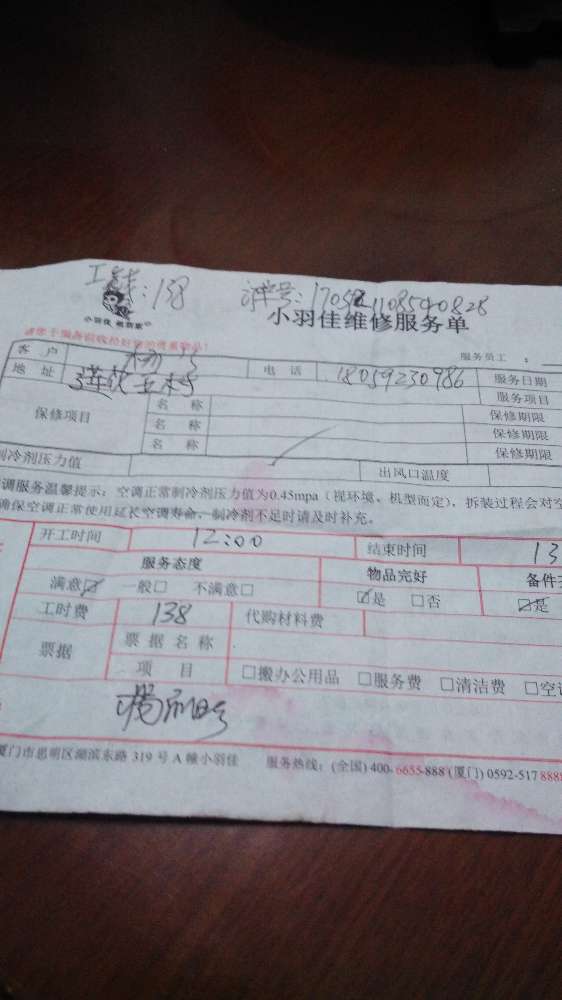 138
小羽佳 帮到家
小羽佳维修服务单
请您于服务前收检好您的贵重物品!
服务员工:
客 户 杨 电 话 18059230986 服务日期
地 址 莲花五村 服务项目
保修项目 名 称 保修期限
名 称 保修期限
名 称 保修期限
制冷剂压力值 出风口温度
调服务温馨提示:空调正常制冷剂压力值为0.45mpa(视环境、机型而定),拆装过程会对空
确保空调正常使用延长空调寿命,制冷剂不足时请及时补充。
开工时间 12:00 结束时间 13
服务态度 物品完好 备件
满意☑ 一般□ 不满意□ ☑是 □否 ☑是
工时费 138 代购材料费
票据 票 据 名 称
项 目 □搬办公用品 □服务费 □清洁费 □空
厦门市思明区湖滨东路 319 号 A 幢小羽佳 服务热线:(全国)400-6655-888 (厦门) 0592-517 8888